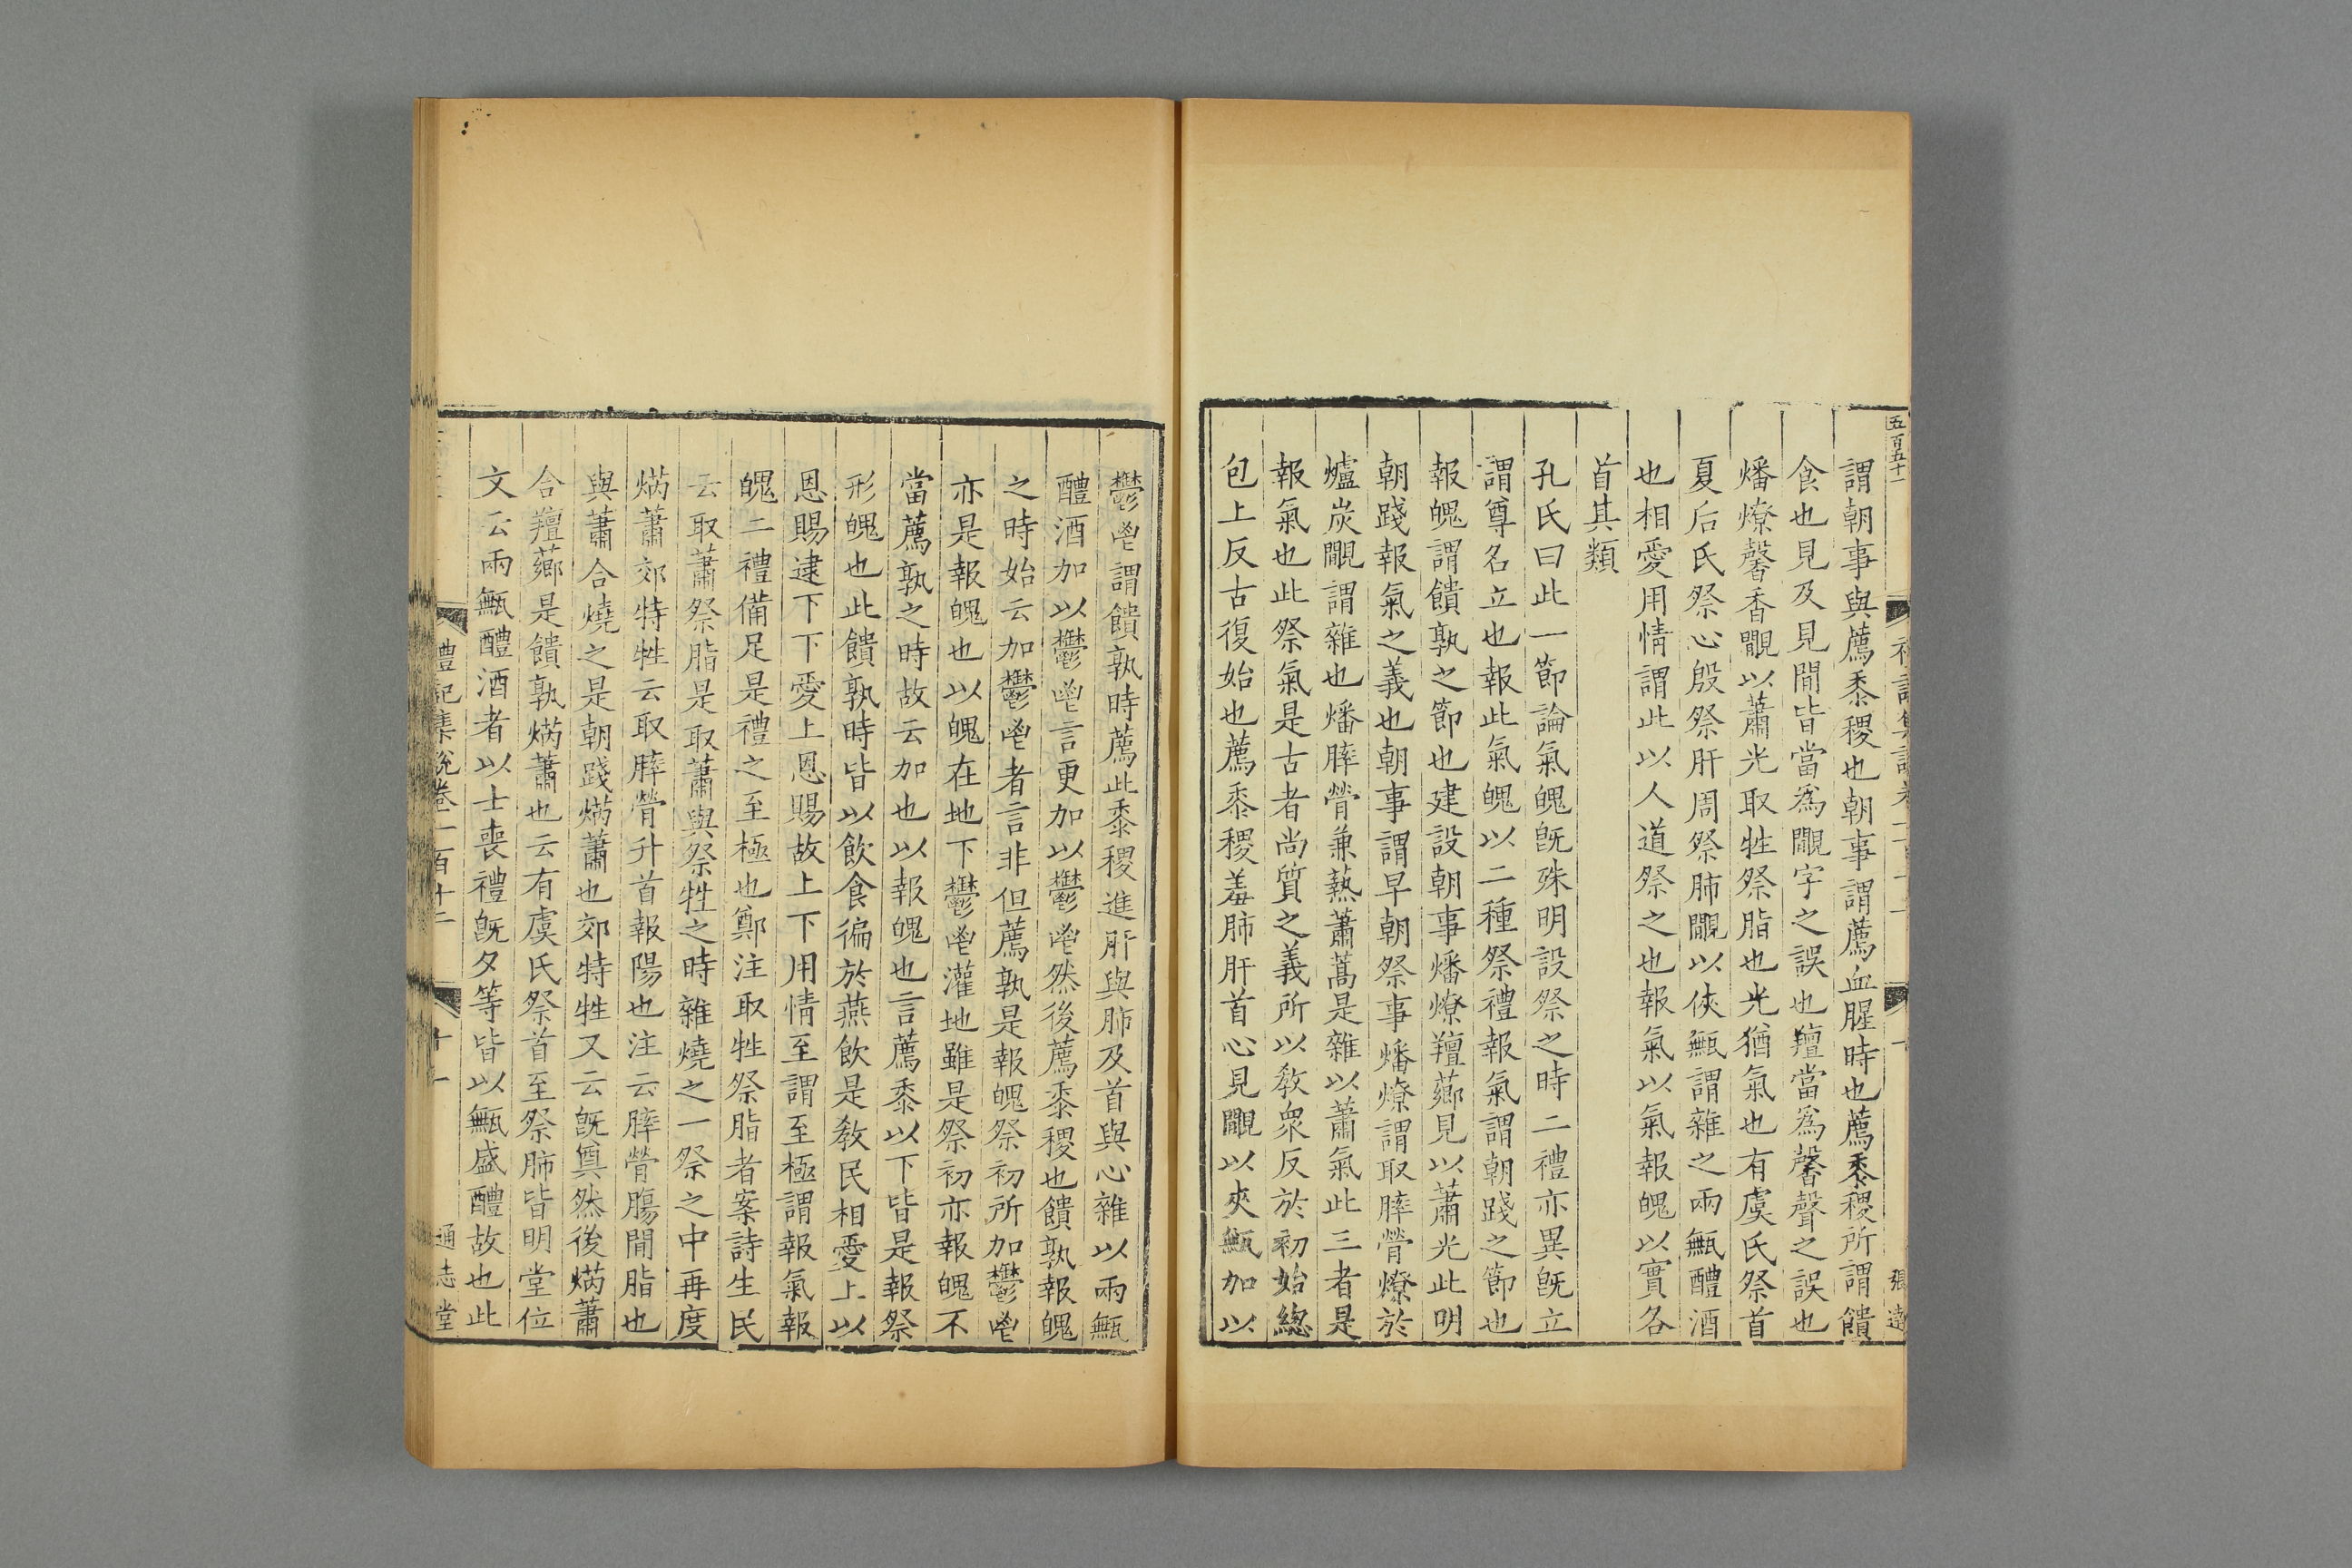 五百五十一
謂朝事與薦黍稷也朝事謂薦血腥時也薦黍稷所謂饋
食也見及見間皆當爲覸字之誤也羶當爲馨聲之誤也
燔燎馨香覸以蕭光取牲祭脂也光猶氣也有虞氏祭首
夏后氏祭心殷祭肝周祭肺覸以俠甒謂雜之兩甒醴酒
也相愛用情謂此以人道祭之也報氣以氣報魄以實各
首其類
孔氏曰此一節論氣魄旣殊明設祭之時二禮亦異旣立
謂尊名立也報此氣魄以二種祭禮報氣謂朝踐之節也
報魄謂饋孰之節也建設朝事燔燎羶薌見以蕭光此明
朝踐報氣之義也朝事謂早朝祭事燔燎謂取膟膋燎於
爐炭覸謂雜也燔膟膋兼爇蕭蒿是雜以蕭氣此三者是
報氣也此祭氣是古者尚質之義所以敎衆反於初始緫
包上反古復始也薦黍稷羞肺肝首心見覸以夾甒加以
鬱鬯謂饋孰時薦此黍稷進肝與肺及首與心雜以兩甒
醴酒加以鬱鬯言更加以鬱鬯然後薦黍稷也饋孰報魄
之時始云加鬱鬯者言非但薦孰是報魄祭初所加鬱鬯
亦是報魄也以魄在地下鬱鬯灌地雖是祭初亦報魄不
當薦孰之時故云加也以報魄也言薦黍以下皆是報祭
形魄也此饋孰時皆以飲食徧於燕飲是敎民相愛上以
恩賜逮下下愛上恩賜故上下用情至謂至極謂報氣報
魄二禮備足是禮之至極也鄭注取牲祭脂者案詩生民
云取蕭祭脂是取蕭與祭牲之時雜燒之一祭之中再度
焫蕭郊特牲云取膟膋升首報陽也注云膟膋腸間脂也
與蕭合燒之是朝踐焫蕭也郊特牲又云旣奠然後焫蕭
合羶薌是饋孰焫蕭也云有虞氏祭首至祭肺皆明堂位
文云兩甒醴酒者以士喪禮旣夕等皆以甒盛醴故也此
禮記集說卷一百十二
十一
通志堂